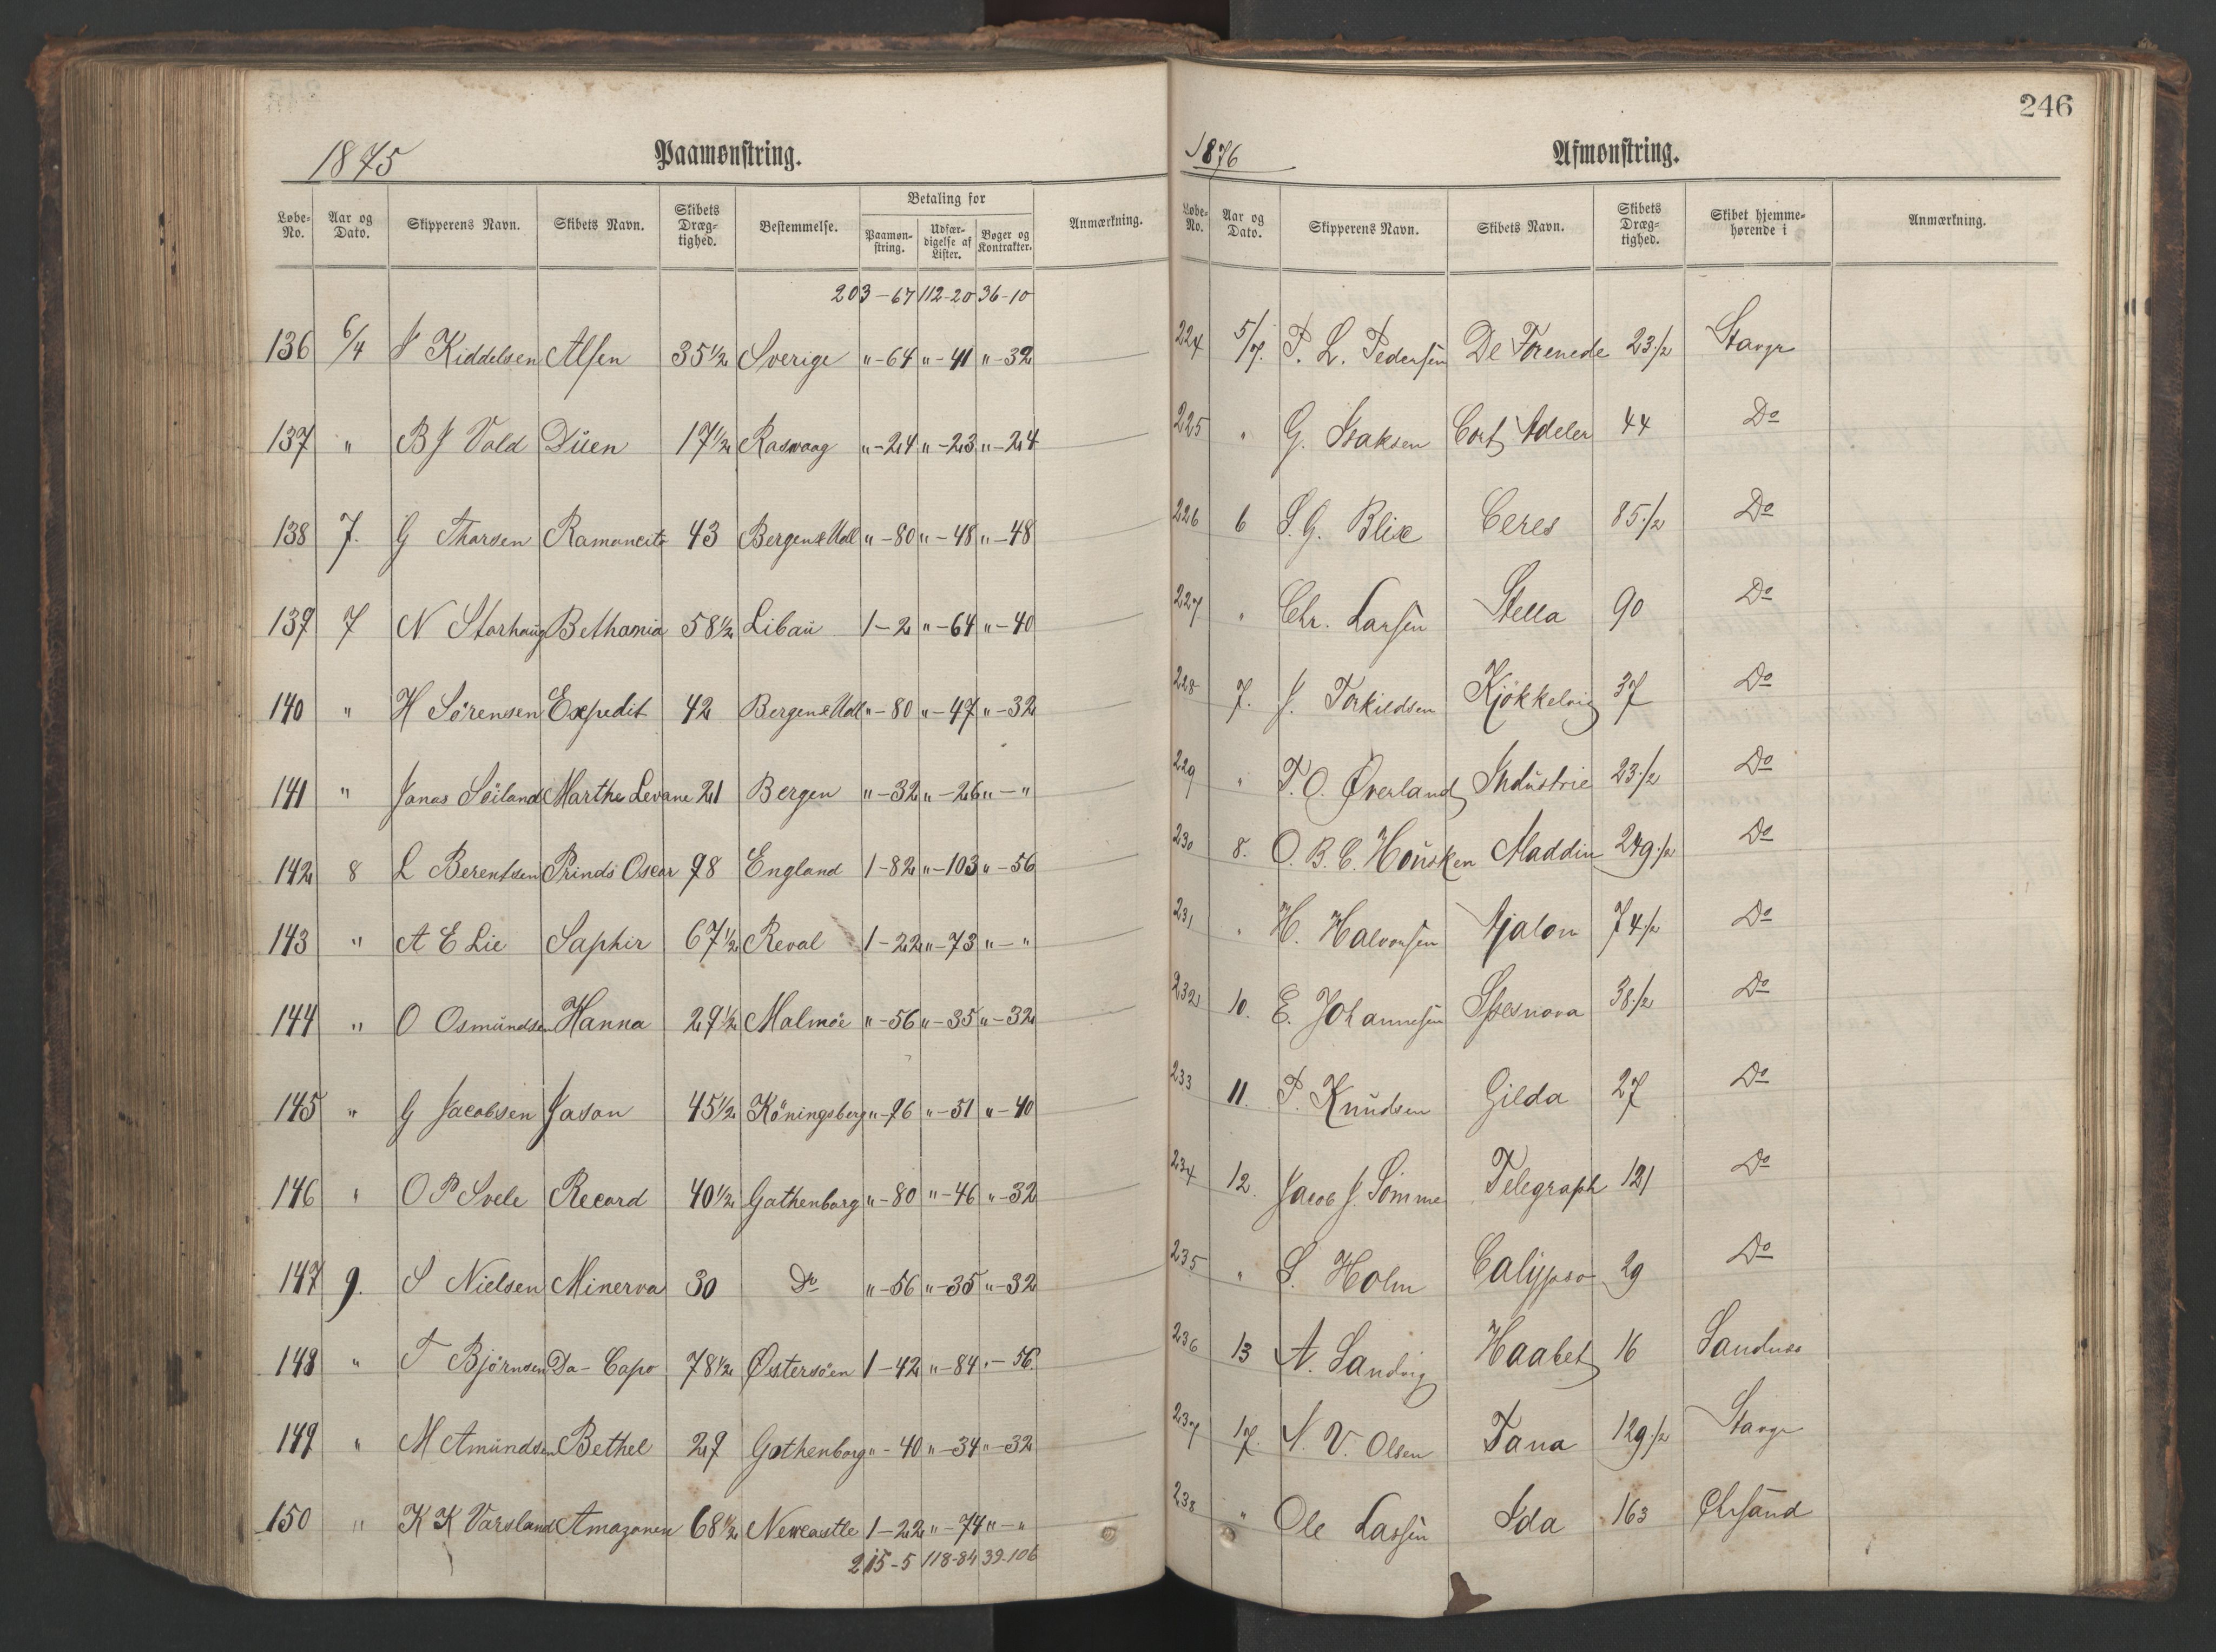 246
1875 Paamønstring.
Løbe-No. Aar og Dato. Skipperens Navn. Skibets Navn. Skibets Dræg-tighed. Bestemmelse. Betaling for Paamøn-string. Udfær-digelse af Lister. Bøger og Kontrakter. Anmærkning.
203-67 112-20 36-10
136 6/4 Kiddelsen Alsen 35½ Sverige "-64 "-41 "-32
137 " B J Vold Düen 17½ Rasvaag "-24 "-23 "-24
138 7. G Thorsen Ramoncita 43 Bergen & Udl "-80 "-48 "-48
139 7 N Storhaug Bethania 58½ Libaü 1-2 "-64 "-40
140 " H Sörensen Expedit 42 Bergen & Udl "-80 "-47 "-32
141 " Jonas Söiland Marthe Levane 21 Bergen "-32 "-26 "-"
142 8 L Berentsen Prinds Oscar 98 England 1-82 "-103 "-56
143 " A E Lie Saphir 67½ Reval 1-22 "-73 "-"
144 " O Osmündsen Hanna 29½ Malmöe "-56 "-35 "-32
145 " G Jacobsen Jason 45½ Köningsberg "-96 "-51 "-40
146 " O P Svele Record 40½ Gothenborg "-80 "-46 "-32
147 9. S Nielsen Minerva 30 Do "-56 "-35 "-32
148 " T Björnsen Da-Capo 78½ Østersöen 1-42 "-84 "-56
149 " M Amündsen Bethel 29 Gothenborg "-40 "-34 "-32
150 " K K Varsland Amazonen 68½ Newcastle 1-22 "-74 "-"
215-5 118-84 39-106
1876 Afmønstring.
Løbe-No. Aar og Dato. Skipperens Navn. Skibets Navn. Skibets Dræg-tighed. Skibet hjemme-hørende i Anmærkning.
224 5/7. P. L. Pedersen De Forenede 23½ Stavgr
225 " G. Isaksen Cort Adeler 44 Do
226 6 S. G. Blix Ceres 85½ Do
227 " Chr. Larsen Stella 90 Do
228 7. J. Torkildsen Kjökkelvig 37 Do
229 " T. O. Øverland Indüstrie 23½ Do
230 8. O. B. C. Housken Aladdin 249½ Do
231 " H. Halvorsen Gjalon 74½ Do
232 10. E. Johannesen Spesnova 38½ Do
233 11. P. Knüdsen Gilda 27 Do
234 12. Jacob J. Sömme Telegraph 121 Do
235 " S. Holm Calypso 29 Do
236 13 A. Sandvig Haabet 16 Sandnes
237 17. N. V. Olsen Tana 129½ Stavgr
238 " Ole Lassen Ida 163 Chrsand